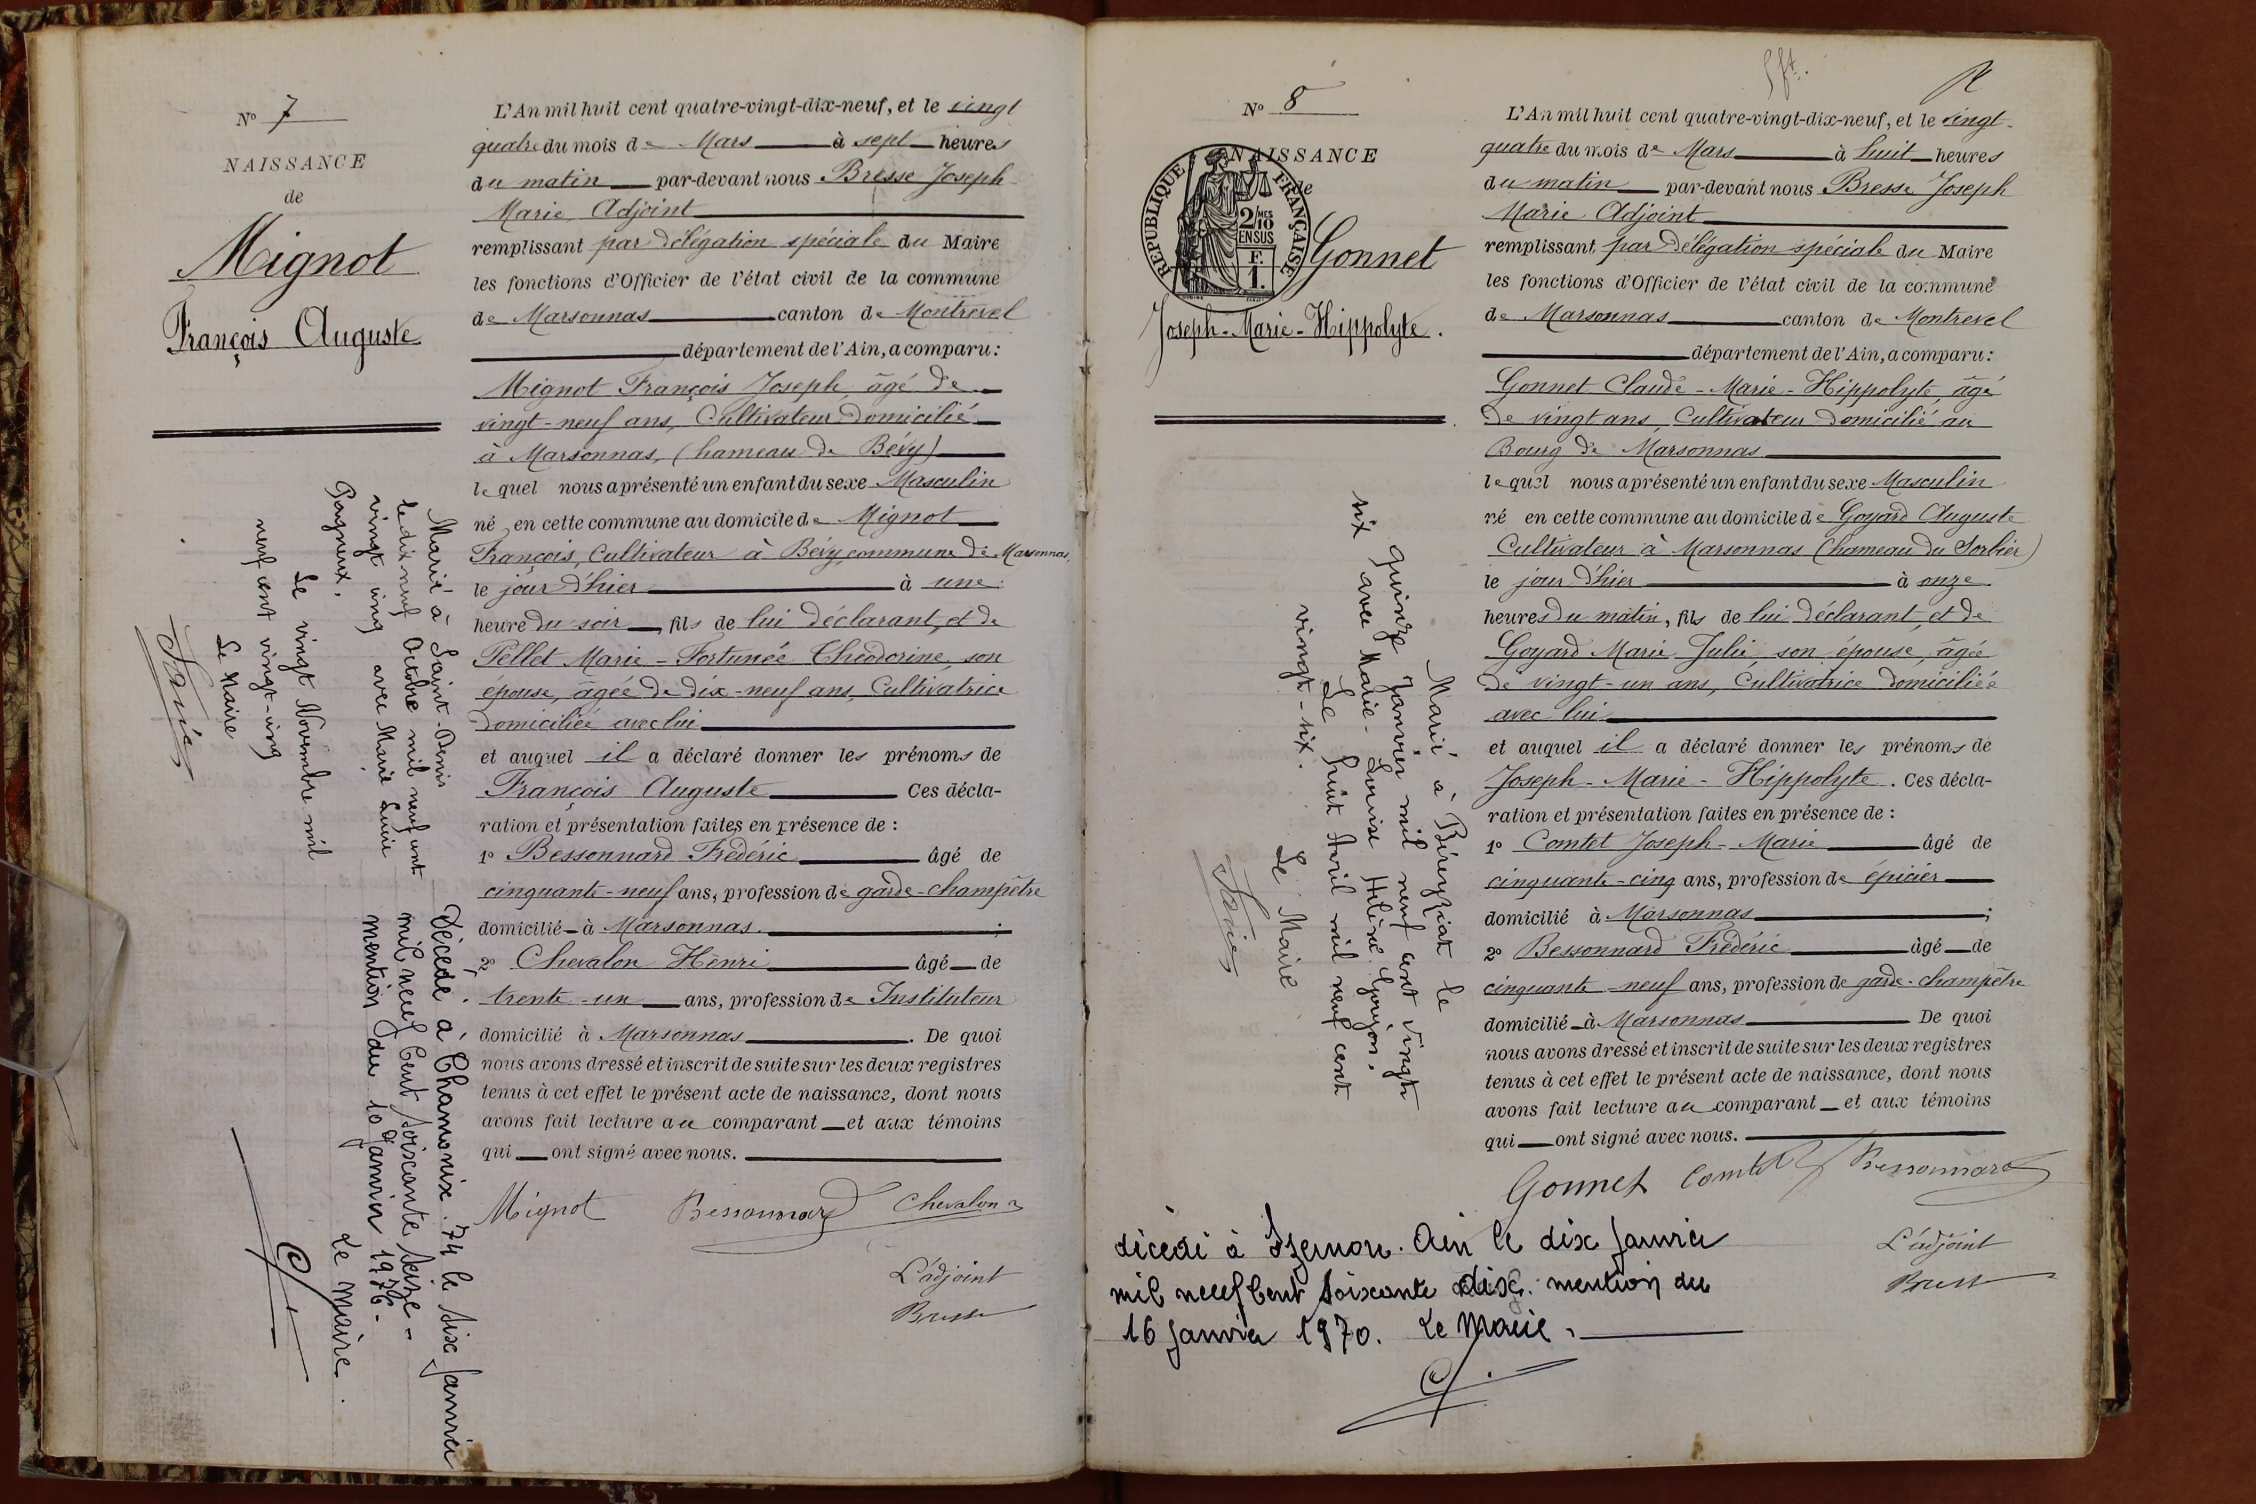 N° 7
NAISSANCE
de
Mignot
François Auguste
L'An mil huit cent quatre-vingt-dix-neuf, et le vingt
quatre du mois de Mars à sept heures
du matin par-devant nous Bresse Joseph
Marie Adjoint
remplissant par délégation spéciale du Maire
les fonctions d'Officier de l'état civil de la commune
de Marsonnas canton de Montrevel
département de l'Ain, a comparu:
Mignot François Joseph, âgé de
vingt-neuf ans, Cultivateur domicilié
à Marsonnas, (hameau de Bévy)
lequel nous a présenté un enfant du sexe Masculin
né en cette commune au domicile de Mignot
François, Cultivateur à Bévy, commune de Marsonnas,
le jour d'hier à une
heure du soir, fils de lui déclarant, et de
Pellet Marie-Fortunée Théodorine, son
épouse, âgée de dix-neuf ans, Cultivatrice
domiciliée avec lui
et auquel il a déclaré donner les prénoms de
François Auguste Ces décla-
ration et présentation faites en présence de :
1° Bessonnard Frédéric âgé de
cinquante-neuf ans, profession de garde-champêtre
domicilié à Marsonnas ;
2° Chevalon Henri âgé de
trente-un ans, profession de Instituteur
domicilié à Marsonnas. De quoi
nous avons dressé et inscrit de suite sur les deux registres
tenus à cet effet le présent acte de naissance, dont nous
avons fait lecture au comparant et aux témoins
qui ont signé avec nous.
Mignot Bessonnard Chevalon
L'adjoint
Bresse
Marié à Saint-Denis
le dix neuf Octobre mil neuf cent
vingt cinq avec Marie Lucie
Pagneux.
Le vingt Novembre mil
neuf cent vingt-cinq
Le Maire
Décédé à Chamonix. 74 le six Janvier
mil neuf cent soixante seize -
mention du 10 Janvier 1976 -
Le Maire.
N° 8
NAISSANCE
de
RÉPUBLIQUE FRANÇAISE
2/10 MES
EN SUS
F.
1.
Gonnet
Joseph-Marie-Hippolyte.
L'An mil huit cent quatre-vingt-dix-neuf, et le vingt-
quatre du mois de Mars à huit heures
du matin par-devant nous Bresse Joseph
Marie Adjoint
remplissant par délégation spéciale du Maire
les fonctions d'Officier de l'état civil de la commune
de Marsonnas canton de Montrevel
département de l'Ain, a comparu:
Gonnet Claude-Marie-Hippolyte, âgé
de vingt ans, Cultivateur domicilié au
Bourg de Marsonnas
lequel nous a présenté un enfant du sexe Masculin
né en cette commune au domicile de Goyard Auguste
Cultivateur à Marsonnas (hameau du Sorbier)
le jour d'hier à onze
heures du matin, fils de lui déclarant, et de
Goyard Marie Julie, son épouse, âgée
de vingt-un ans, Cultivatrice domiciliée
avec lui
et auquel il a déclaré donner les prénoms de
Joseph-Marie-Hippolyte. Ces décla-
ration et présentation faites en présence de :
1° Comtet Joseph-Marie âgé de
cinquante-cinq ans, profession de épicier
domicilié à Marsonnas ;
2° Bessonnard Frédéric âgé de
cinquante-neuf ans, profession de garde-champêtre
domicilié à Marsonnas De quoi
nous avons dressé et inscrit de suite sur les deux registres
tenus à cet effet le présent acte de naissance, dont nous
avons fait lecture au comparant et aux témoins
qui ont signé avec nous.
Gonnet Comtet Bessonnard
L'adjoint
Bresse
Marié à Béréyziat le
quinze Janvier mil neuf cent vingt
six avec Marie-Louise Hélène Goujon.
Le huit Avril mil neuf cent
vingt-six.
Le Maire
décédé à Izernore. Ain le dix Janvier
mil neuf cent soixante dix. mention du
16 Janvier 1970. Le Maire.